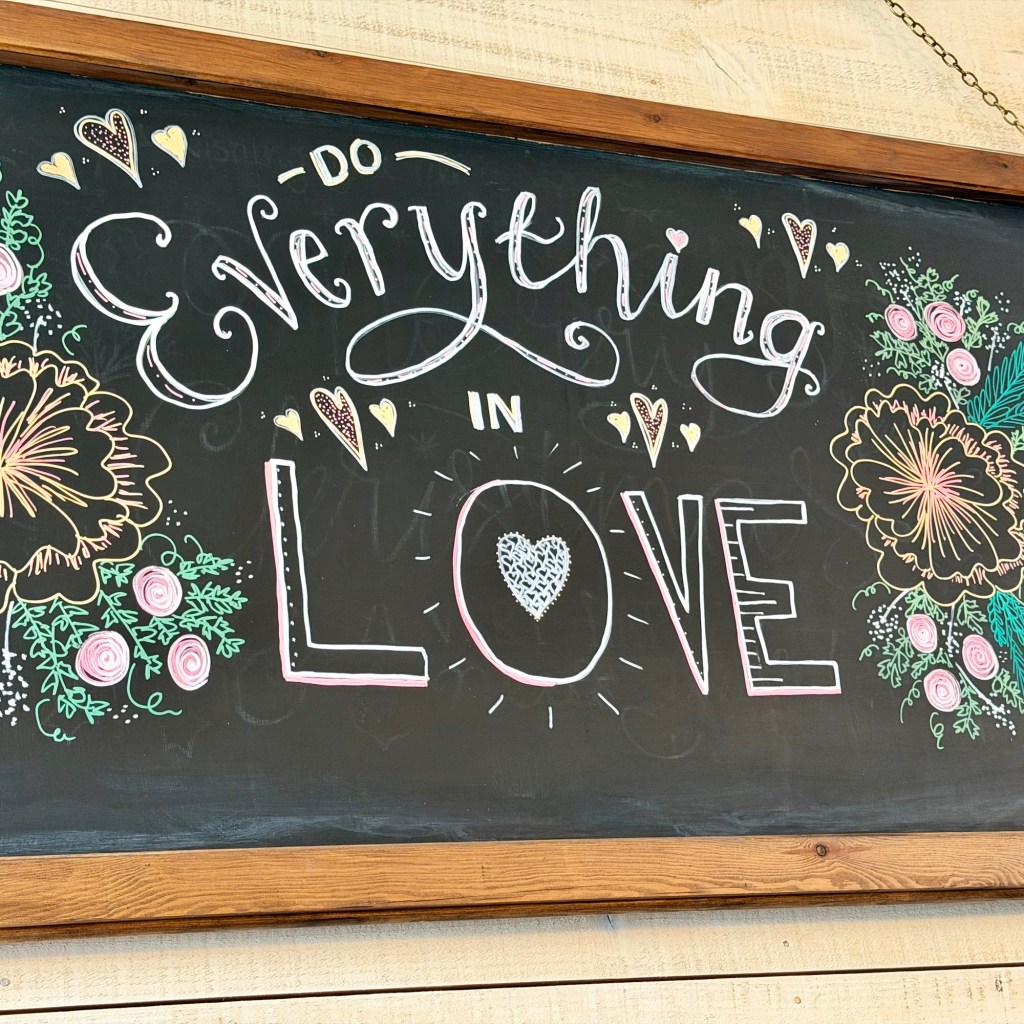 DO
Everything
IN
LOVE